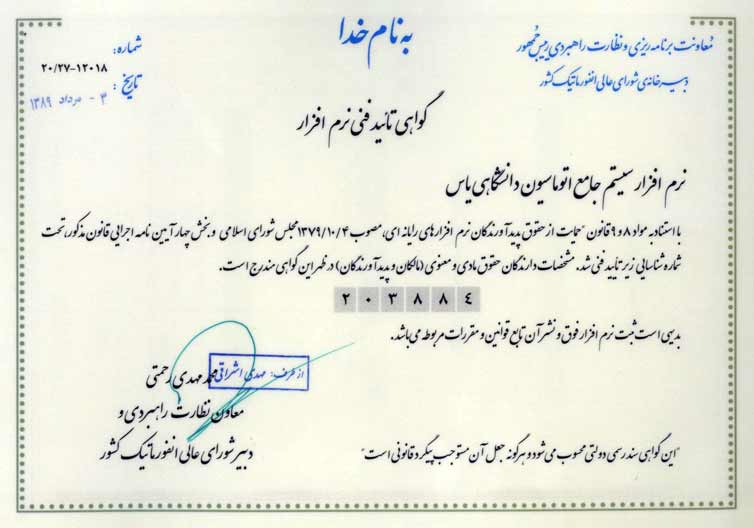 به نام خدا
معاونت برنامه ریزی و نظارت راهبردی رییس جمهور
دبیرخانه‌ی شورای عالی انفورماتیک کشور
شماره:
۲۰/۲۷-۱۲۰۱۸
تاریخ:
۳ - مرداد ۱۳۸۹
گواهی تائید فنی نرم افزار
نرم افزار سیستم جامع اتوماسیون دانشگاهی یاس
با استناد به مواد ۸ و ۹ قانون "حمایت از حقوق پدیدآورندگان نرم افزارهای رایانه ای، مصوب ۱۳۷۹/۱۰/۴ مجلس شورای اسلامی و بخش چهار آیین نامه اجرایی قانون مذکور، تحت
شماره شناسایی زیر تایید فنی شد. مشخصات دارندگان حقوق مادی و معنوی (مالکان و پدیدآورندگان) در ظهر این گواهی مندرج است.
۲۰۳۸۸۴
بدیهی است ثبت نرم افزار فوق و نشر آن تابع قوانین و مقررات مربوطه می‌باشد.
از طرف: مهدی اشراقی
محمد مهدی رحمتی
معاون نظارت راهبردی و
دبیر شورای عالی انفورماتیک کشور
"این گواهی سند رسمی دولتی محسوب می‌شود و هرگونه جعل آن مستوجب پیگرد قانونی است"